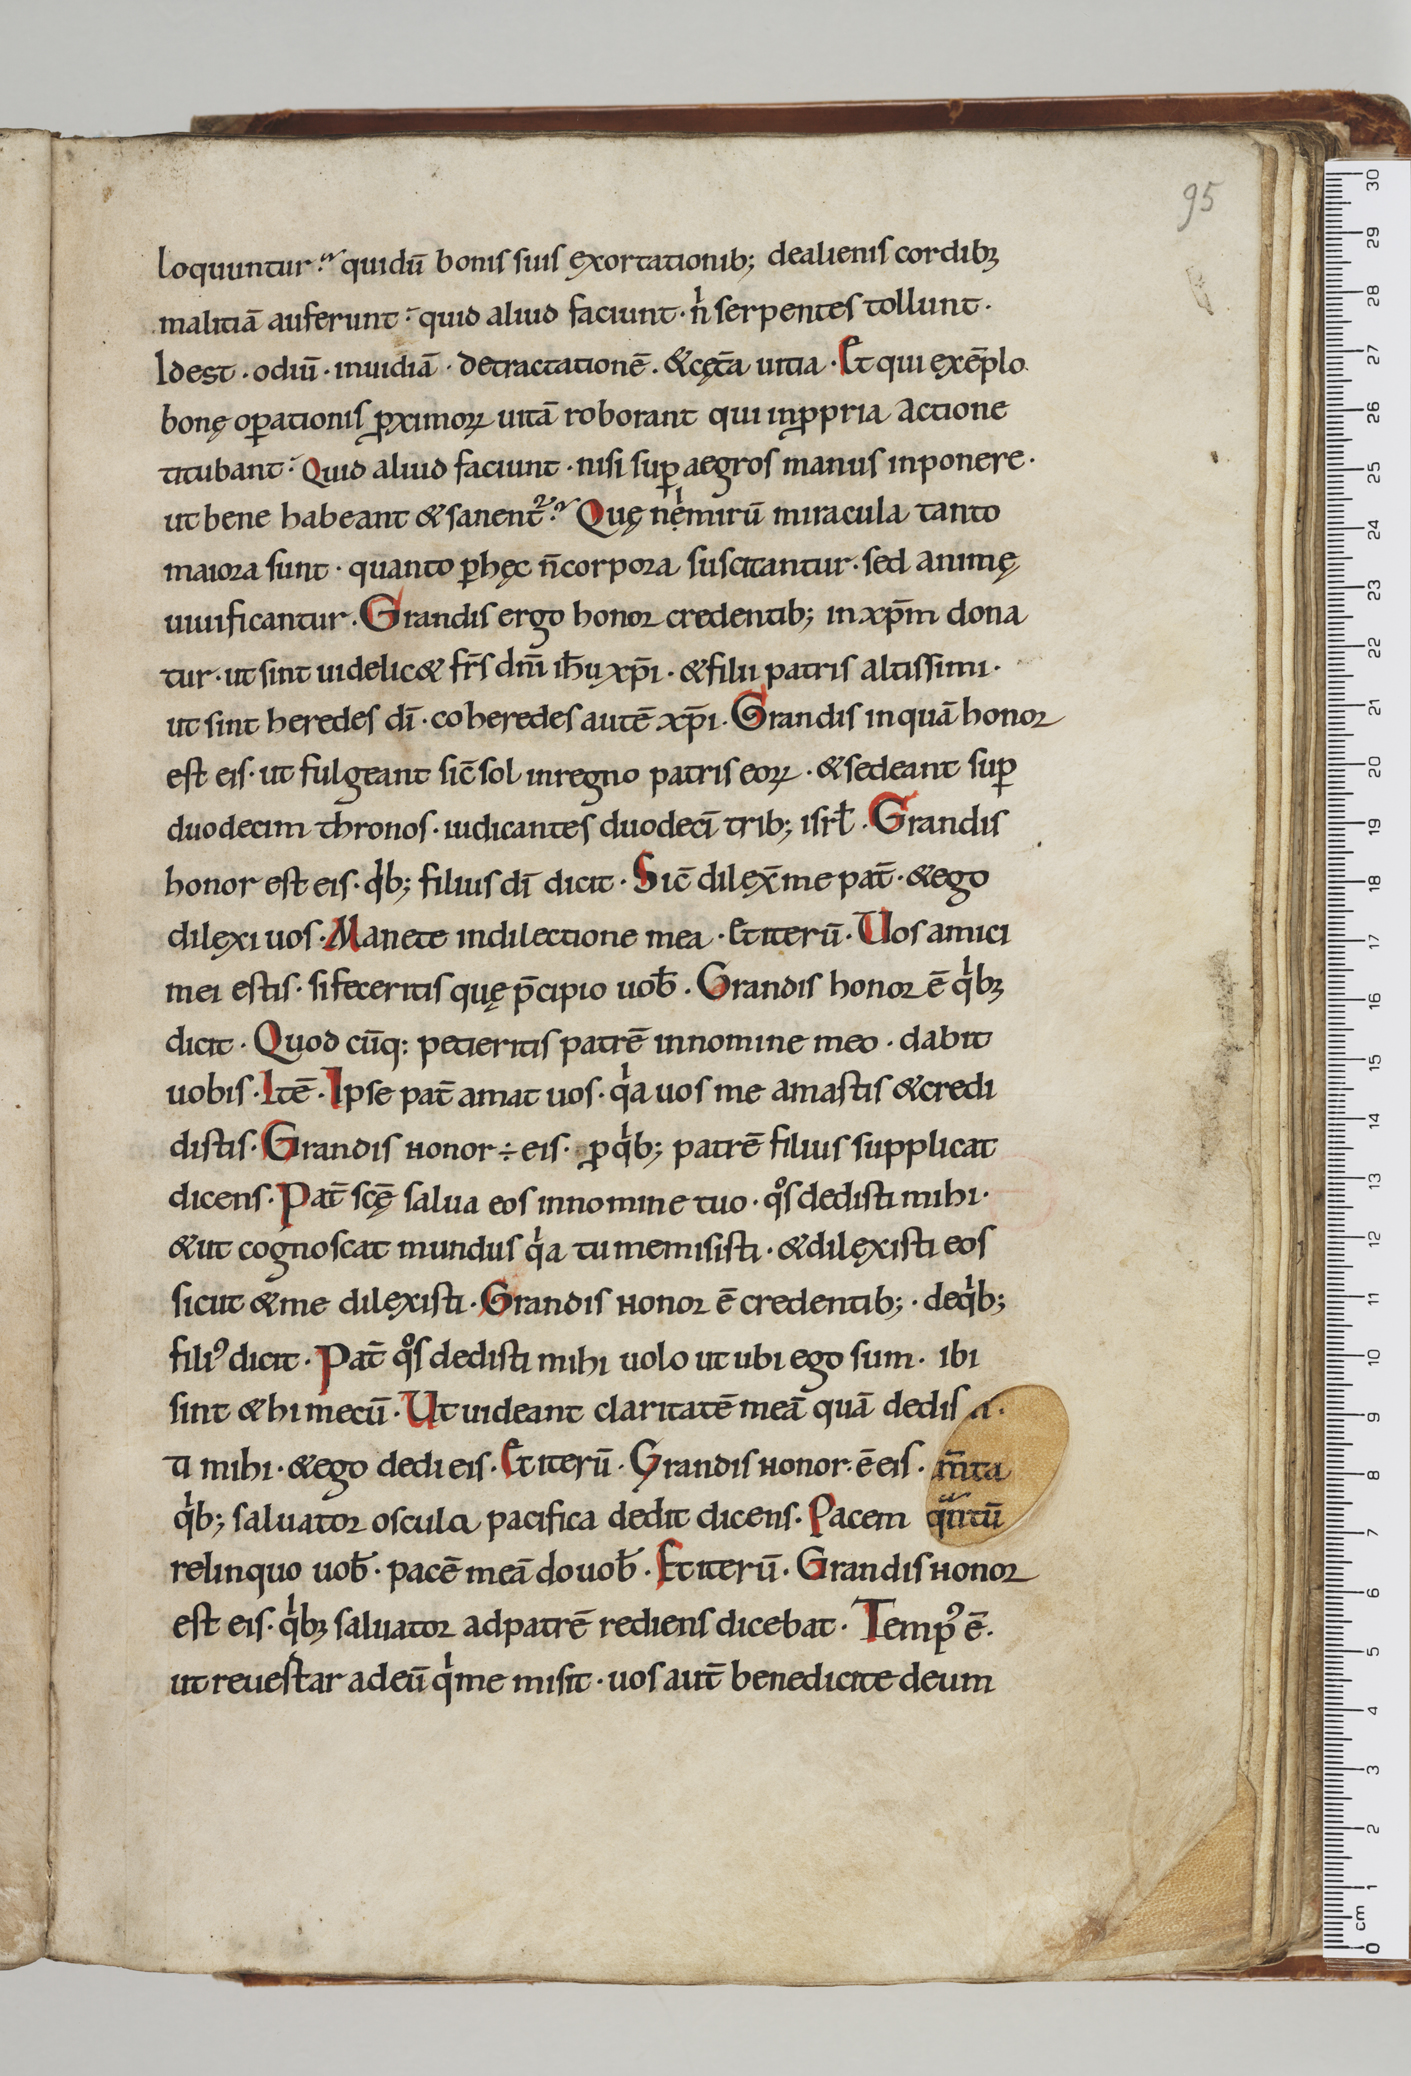 95
loquuntur? qui dū bonis suis exortationib; de alienis cordibꝫ
malitiā auferunt· quid aliud faciunt· ń serpentes tollunt·
Idest· odiū· inuidiā· detractationē· & cęt̄a uitia· Et qui exēplo
bonę oꝑationis ꝓximoꝝ uitā roborant qui in ꝓpria actione
titubant· Quid aliud faciunt· nisi suꝑ aegros manus inponere·
ut bene habeant & sanent᷑? Quę nęmirū miracula tanto
maiora sunt· quanto ꝑ hęc n̄ corpora suscitantur· sed animę
uiuificantur· Grandis ergo honor credentib; in xp̄m dona
tur· ut sint uidelic& fr̄s dn̄i ih̄u xp̄i· & filii patris altissimi·
ut sint heredes dī· coheredes autē xp̄i· Grandis inquā honor
est eis· ut fulgeant sic̄ sol in regno patris eoꝝ· & sedeant suꝑ
duodecim thronos· iudicantes duodecī trib; isrł· Grandis
honor est eis· qͥb; filius dī dicit· Sic̄ dilex̄ me pat̄· & ego
dilexi uos· Manete in dilectione mea· Et iterū· Uos amici
mei estis· si feceritis quę p̄cipio uob̄· Grandis honor ē qͥbꝫ
dicit· Quodcūq: petieritis patrē in nomine meo· dabit
uobis· Itē· Ipse pat̄ amat uos· qͥa uos me amastis & credi
distis· Grandis honor ÷ eis· ꝓ qͥb; patrē filius supplicat
dicens· Pat̄ scę̄ salua eos in nomine tuo· qͦs dedisti mihi·
& ut cognoscat mundus qͥa tu me misisti· & dilexisti eos
sicut & me dilexisti· Grandis honor ē credentib;· de qͥb;
filiꝰ dicit· Pat̄ qͦs dedisti mihi uolo ut ubi ego sum· ibi
sint & hi mecū· Ut uideant claritatē meā quā dedis
ti mihi· & ego dedi eis· Et iterū· Grandis honor· ē eis·
qͥb; saluator oscula pacifica dedit dicens· Pacem
relinquo uob̄· pacē meā do uob̄· Et iterū· Grandis honor
est eis· qͥbꝫ saluator ad patrē rediens dicebat· Tempꝰ ē·
ut reuestar ad eū qͥ me misit· uos aut̄ benedicite deum
0 cm 1 2 3 4 5 6 7 8 9 10 11 12 13 14 15 16 17 18 19 20 21 22 23 24 25 26 27 28 29 30